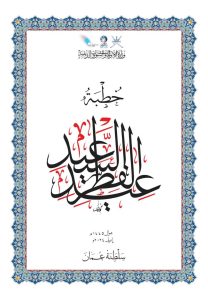 وزارة الأوقاف والشؤون الدينية
خُطْبَةُ
عيد الفطر السعيد
شوال ١٤٤٥هـ
إبريل ٢٠٢٤م
سلطنة عمان